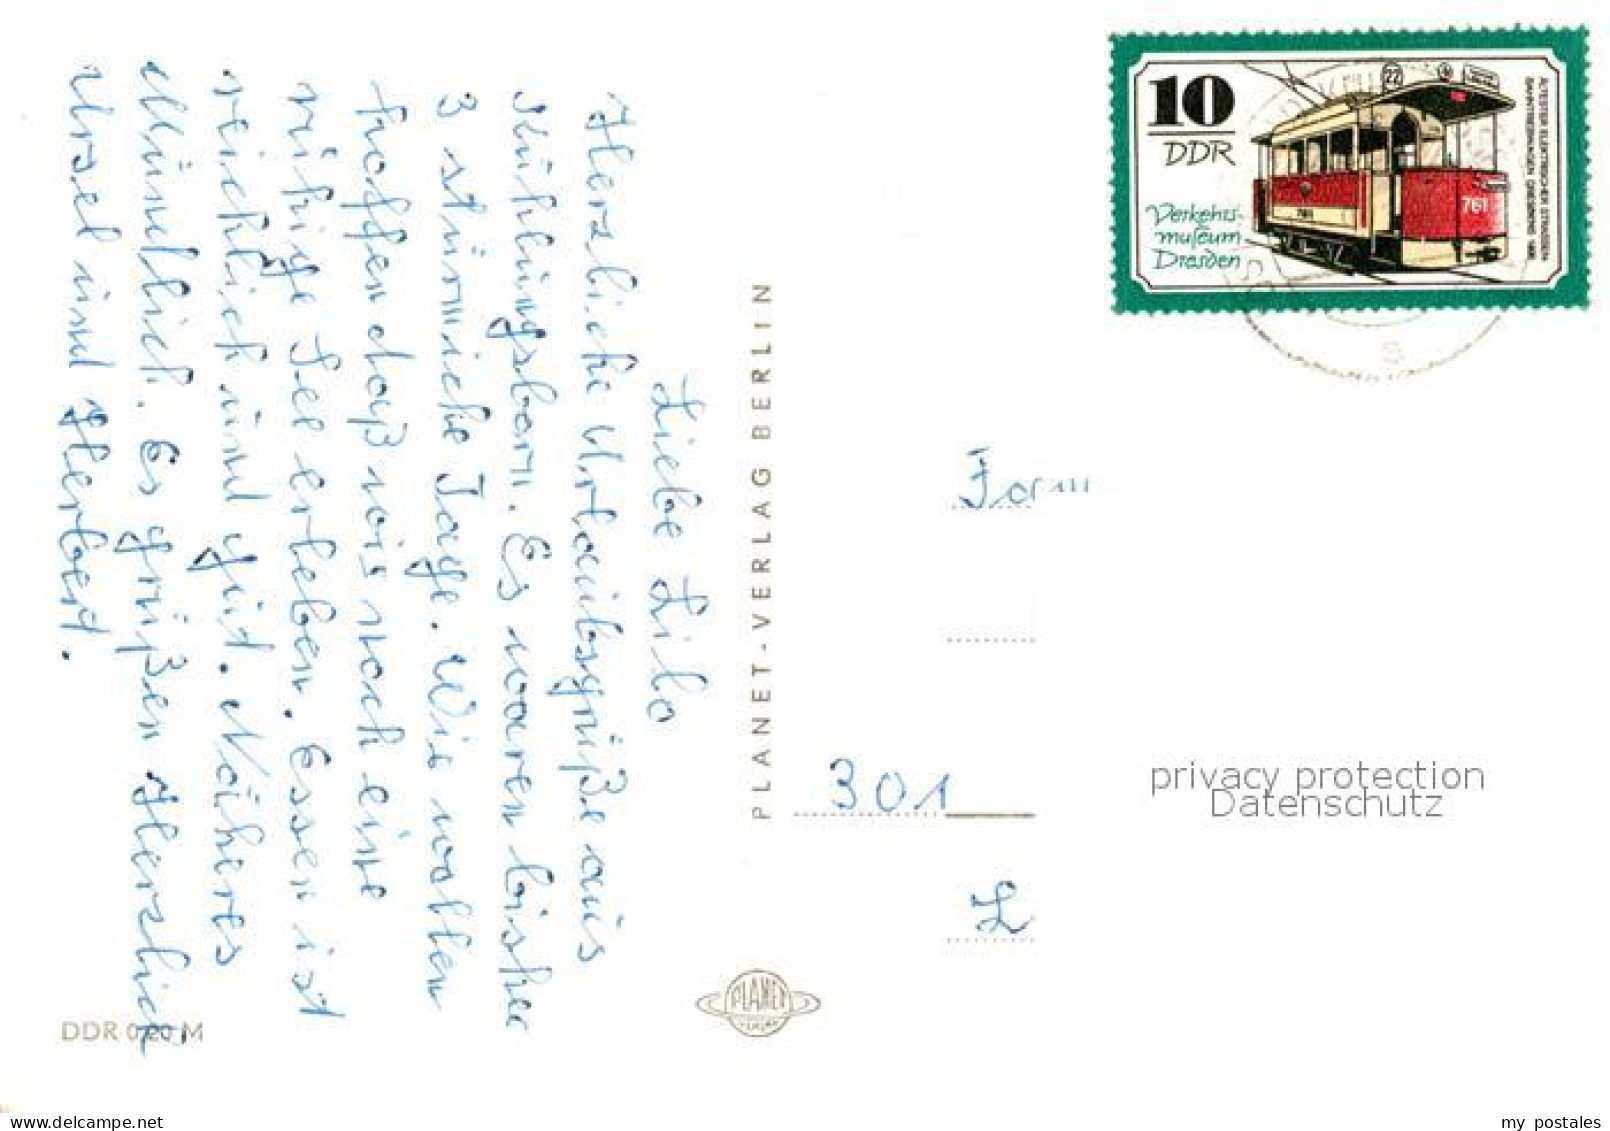 Liebe Lilo
Herzliche Urlaubsgrüße aus
Kühlungsborn. Es waren bisher
3 stürmische Tage. Wir wollen
hoffen daß wir noch eine
ruhige See erleben. Essen ist
reichlich und gut. Näheres
Mündlich. Es grüßen Herzlich
Ursel und Herbert.
DDR 0,20 M
PLANET-VERLAG BERLIN
PLANET
VERLAG
10
DDR
Verkehrs-
museum
Dresden
ÄLTESTER ELEKTRISCHER STRASSEN-
BAHNTRIEBWAGEN DRESDENS 1896
22
761
761
Fam
301
privacy protection
Datenschutz
www.ansichtskartenversand.com
my postales